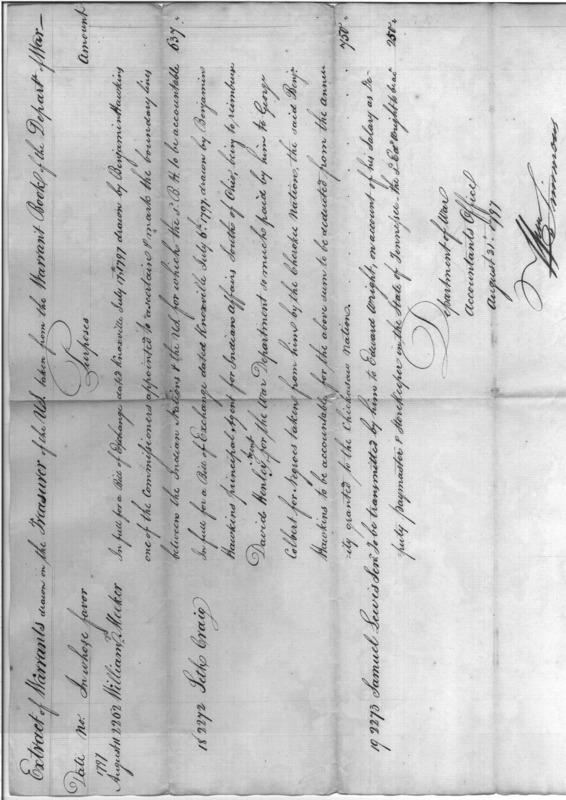 Extract of Warrants drawn on the Treasurer of the U.S. taken from the Warrant Book of the Depart. of War—
Date No. In whose favor Purposes Amount
1797
August 11 2262 William Meeker In full for a Bill of Exchange dated Knoxville July 17th 1797 drawn by Benjamin Hawkins
one of the Commissioners appointed to ascertain & mark the boundary lines
between the Indian Nations & the U.S. for which the s. B. H. to be accountable 637
18 2272 Seth Craig In full for a Bill of Exchange dated Knoxville July 6th 1797 drawn by Benjamin
Hawkins principal Agent for Indian Affairs South of Ohio, being to reimburse
David Henley Agent for the War Department so much paid by him to George
Colbert for Negroes taken from him by the Cherokee Nation, the said Benj.
Hawkins to be accountable for the above sum to be deducted from the annu-
ity granted to the Chickasaw Nation 750
19 2273 Samuel Lewis Senr. to be transmitted by him to Edward Wright, on account of his salary as De-
puty paymaster & Storekeeper in the State of Tennessee the s. Ed. Wright to be ac. 250
Department of War
Accountants Office
August 21st 1797
Wm Simmons